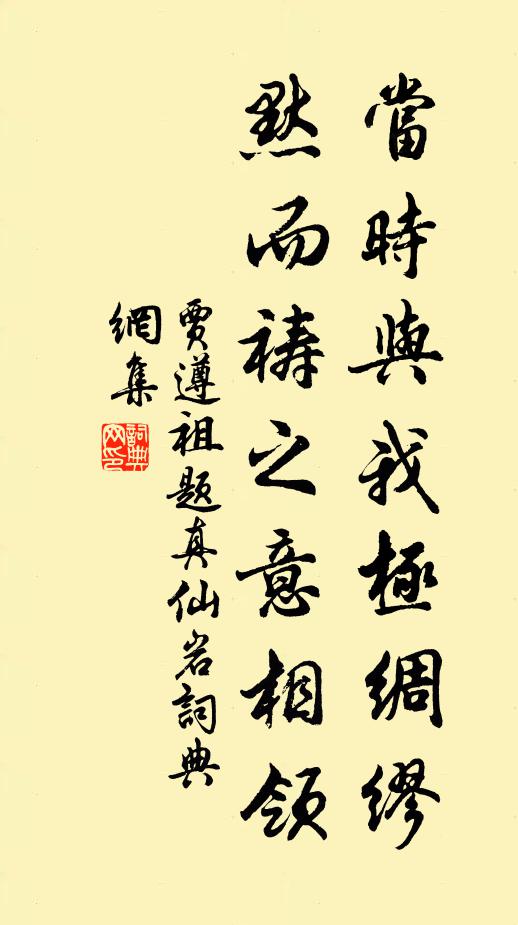 當時與我極綢繆
默而祷之意相領
賈遵祖题真仙岩詞典
網集
詞典
网印